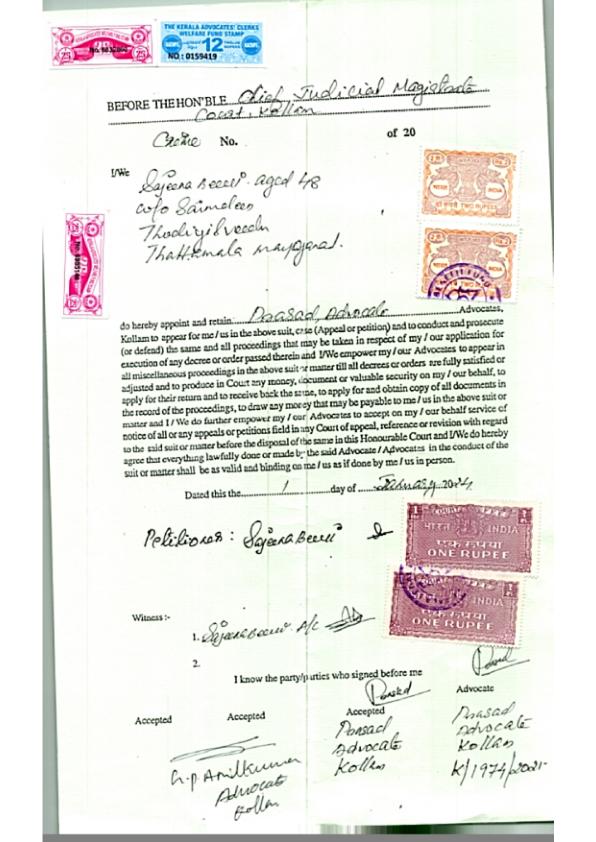 THE KERALA ADVOCATES' CLERKS
WELFARE FUND STAMP
12
NO : 0159419
25
BEFORE THE HON'BLE Chief Judicial Magistrate
Court, Kollam
Crime No. of 20
I/We Sajeena Beevi aged 48
w/o
Thattamala
2 RS. TWO RUPEES INDIA
TWO RUPEES
do hereby appoint and retain Prasad, Advocate Advocates,
Kollam to appear for me / us in the above suit, case (Appeal or petition) and to conduct and prosecute
(or defend) the same and all proceedings that may be taken in respect of my / our application for
execution of any decree or order passed therein and I/We empower my / our Advocates to appear in
all miscellaneous proceedings in the above suit or matter till all decrees or orders are fully satisfied or
adjusted and to produce in Court any money, document or valuable security on my / our behalf, to
apply for their return and to receive back the same, to apply for and obtain copy of all documents in
the record of the proceedings, to draw any money that may be payable to me / us in the above suit or
matter and I / We do further empower my / our Advocates to accept on my / our behalf service of
notice of all or any appeals or petitions field in any Court of appeal, reference or revision with regard
to the said suit or matter before the disposal of the same in this Honourable Court and I/We do hereby
agree that everything lawfully done or made by the said Advocate / Advocates in the conduct of the
suit or matter shall be as valid and binding on me / us as if done by me / us in person.
Dated this the 1 day of January 2024
Petitioner : Sajeena Beevi
भारत INDIA
एक रुपया
ONE RUPEE
INDIA
ONE RUPEE
Witness :-
1. Sajeena Beevi A/C
2.
I know the party/parties who signed before me
Prasad Prasad
Accepted Accepted Accepted Advocate
Prasad Prasad
Advocate Advocate
Kollam Kollam
K/1974/2021
G.P. Anilkumar
Advocate
Kollam